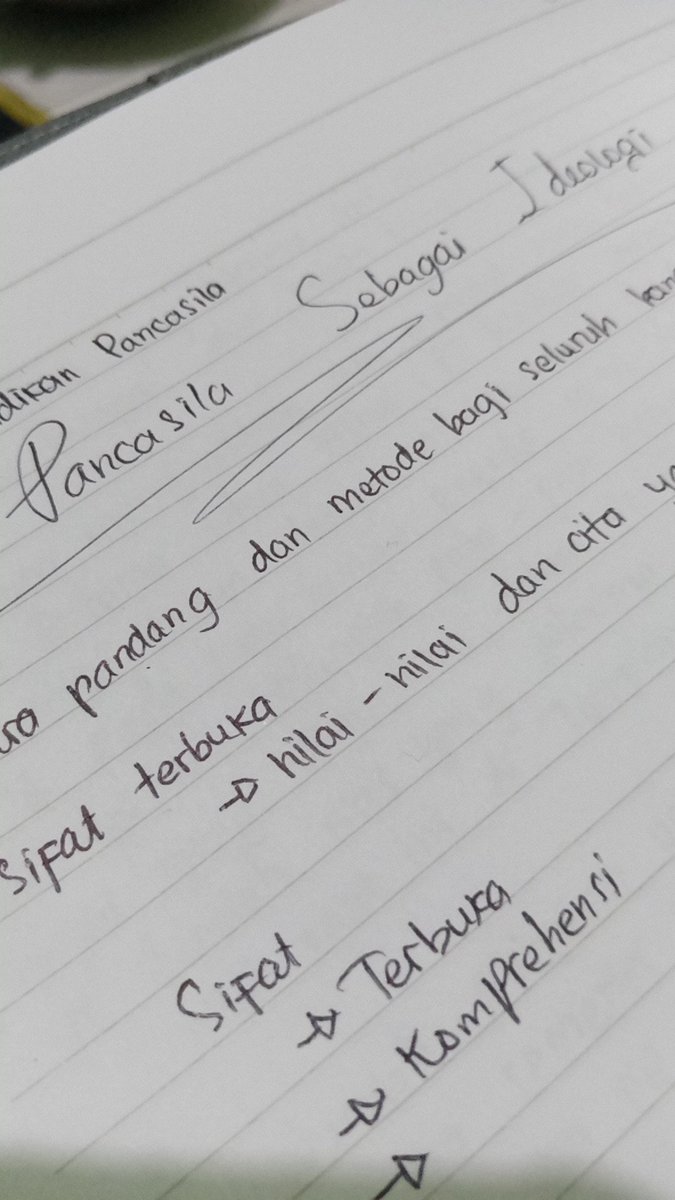 Pancasila
Pancasila Sebagai Ideologi
pandang dan metode bagi seluruh
Sifat terbuka
→ nilai - nilai dan cita
Sifat
→ Terbuka
→ Komprehensi
→